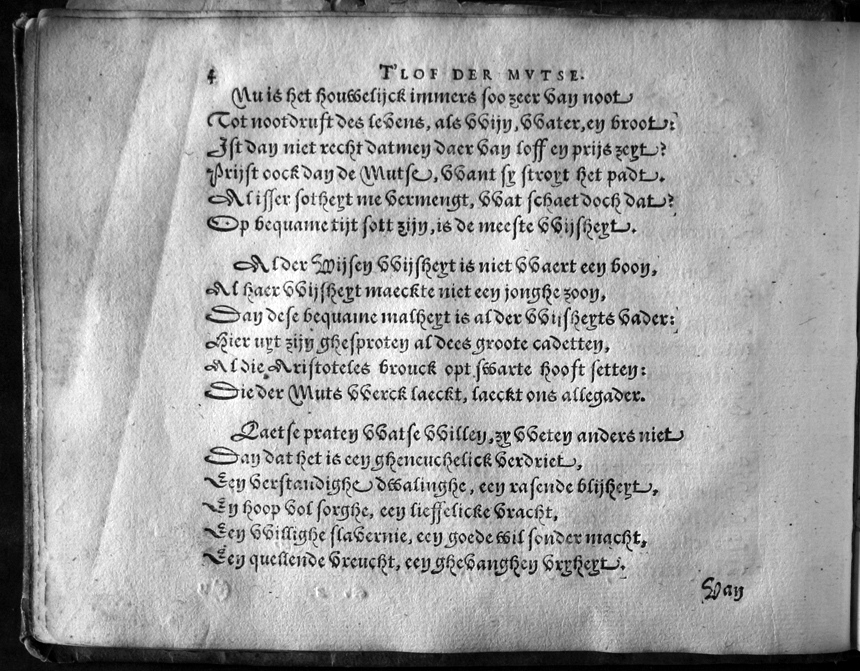 4 T'LOF DER MVTSE.
Nu is het houwelijck immers soo zeer van noot
Tot nootdruft des levens, als Wijn, Water, en broot:
Ist dan niet recht datmen daer van loff en prijs zeyt?
Prijst oock dan de Mutse, Want sy stroyt het padt.
Al isser sotheyt me vermengt, Wat schaet doch dat?
Op bequame tijt sott zijn, is de meeste Wijsheyt.
Al der Wijsen Wijsheyt is niet Waert een boon,
Al haer Wijsheyt maeckte niet een jonghe zoon,
Dan dese bequame malheyt is al der Wijsheyts vader:
Hier uyt zijn ghesproten al dees groote cadetten,
Al die Aristoteles brouck opt swarte hooft setten:
Die der Muts Werck laeckt, laeckt ons allegader.
Laetse praten Watse Willen, zy Weten anders niet
Dan dat het is een gheneuchelick verdriet,
Een verstandighe dwalinghe, een rasende blijheyt,
En hoop vol sorghe, een lieffelicke vracht,
Een Willighe slavernie, een goede wil sonder macht,
Een quellende vreucht, een ghevanghen vryheyt.
Van